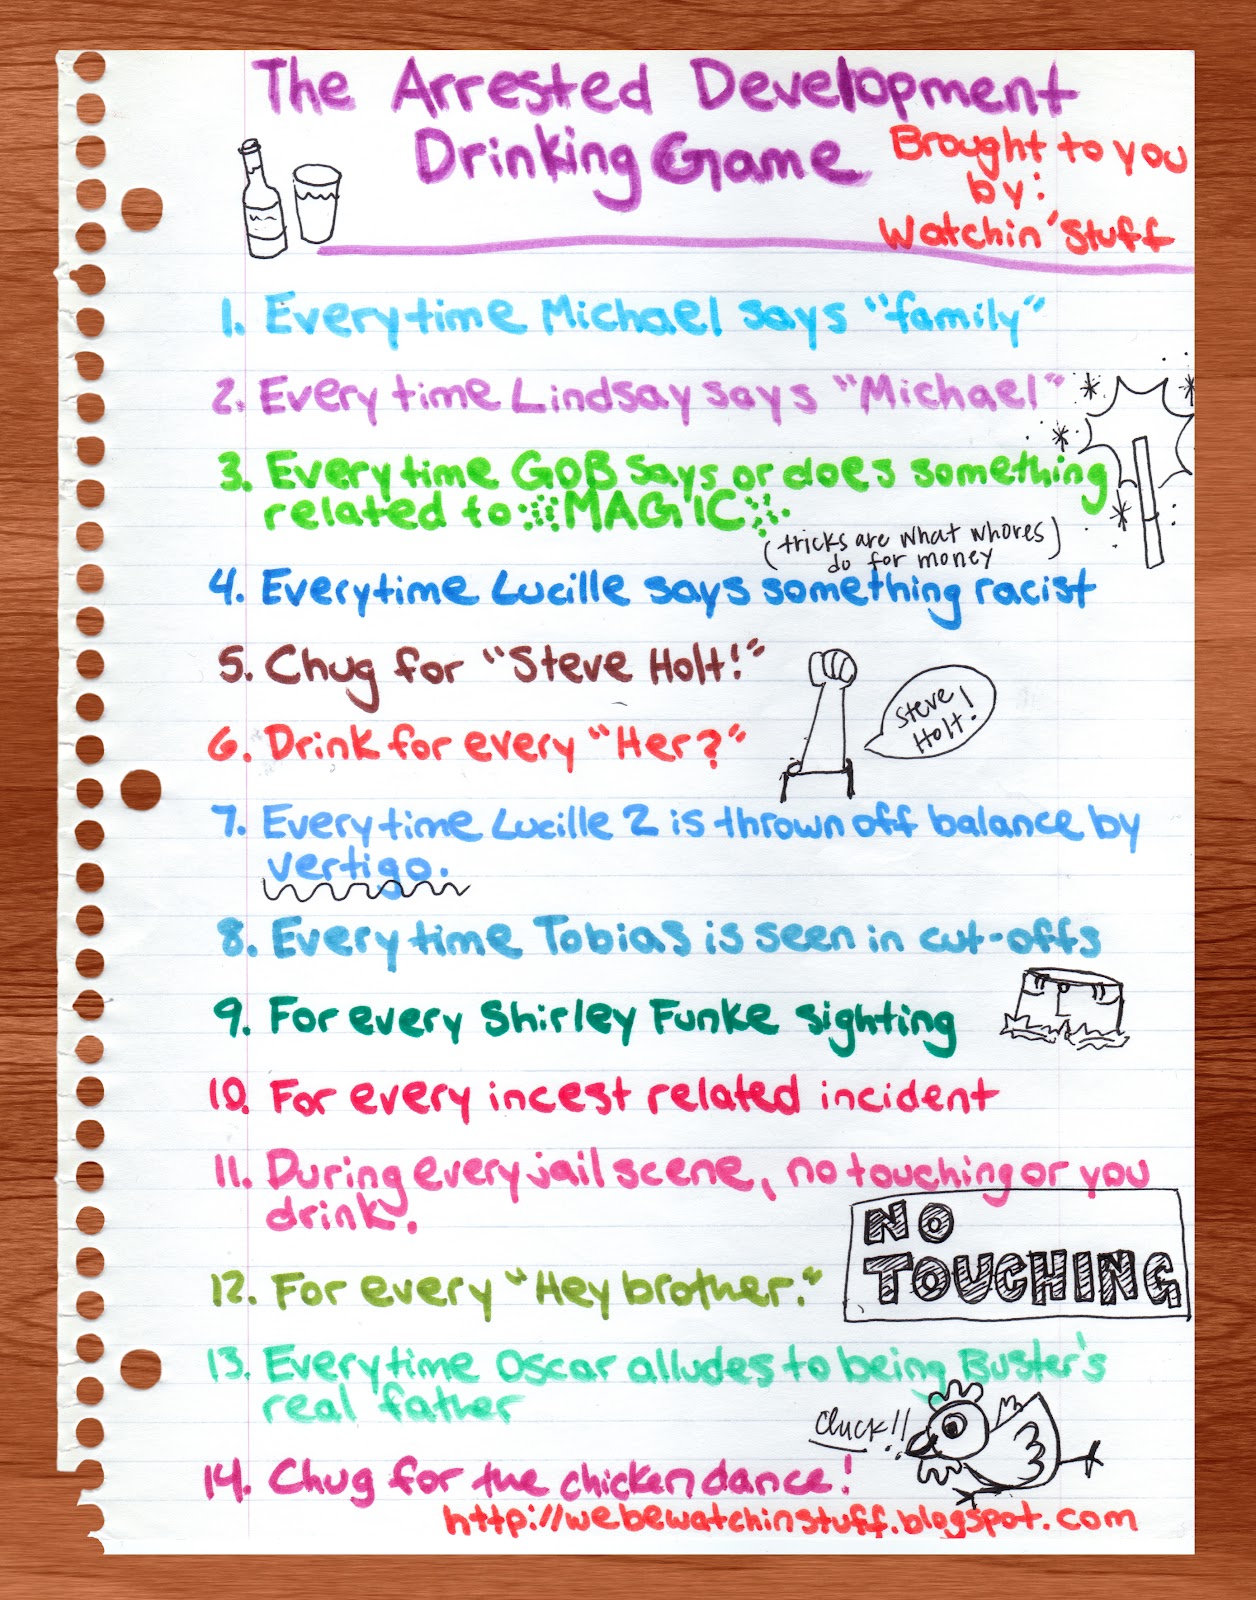 The Arrested Development
Drinking Game
Brought to you
by:
Watchin' Stuff
1. Everytime Michael says "family"
2. Every time Lindsay says "Michael"
3. Every time GOB says or does something
related to MAGIC
(tricks are what whores
do for money)
4. Everytime Lucille says something racist
5. Chug for "Steve Holt!"
Steve
Holt!
6. Drink for every "Her?"
7. Every time Lucille 2 is thrown off balance by
vertigo.
8. Every time Tobias is seen in cut-offs
9. For every Shirley Funke sighting
10. For every incest related incident
11. During every jail scene, no touching or you
drink.
NO
TOUCHING
12. For every "Hey brother."
13. Every time Oscar alludes to being Buster's
real father
Cluck!!
14. Chug for the chicken dance!
http://webewatchinstuff.blogspot.com